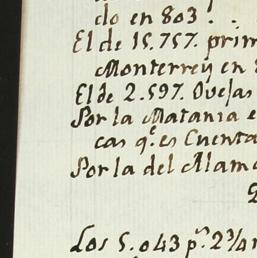 do en 803 ! .
El de 15.757. prim
Monterrey en 8
El de 2.597. Ovejas
Por la Matania e
cas q.e es Cuenta
Por la del Alamo
Los 5.043 p.s 2¾ r